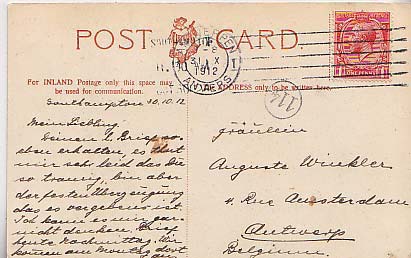 POST CARD.
ANTWERPEN
1912
ANVERS
For INLAND Postage only this space may
be used for communication.
THE ADDRESS ONLY to be written here.
114
Southampton 30.10.12
Mein Liebling!
Deinen l. Brief so-
eben erhalten, es thut
mir sehr leid das Du
so traurig, bin aber
der festen Überzeugung
das es vergebens ist.
Ich kann es mir gar
nicht denken. Brief
heute Nachmittag. Wir
kommen am Montag dort
Fräulein
Auguste Winkler
4. Rue Amsterdam
Antwerp
Belgium.